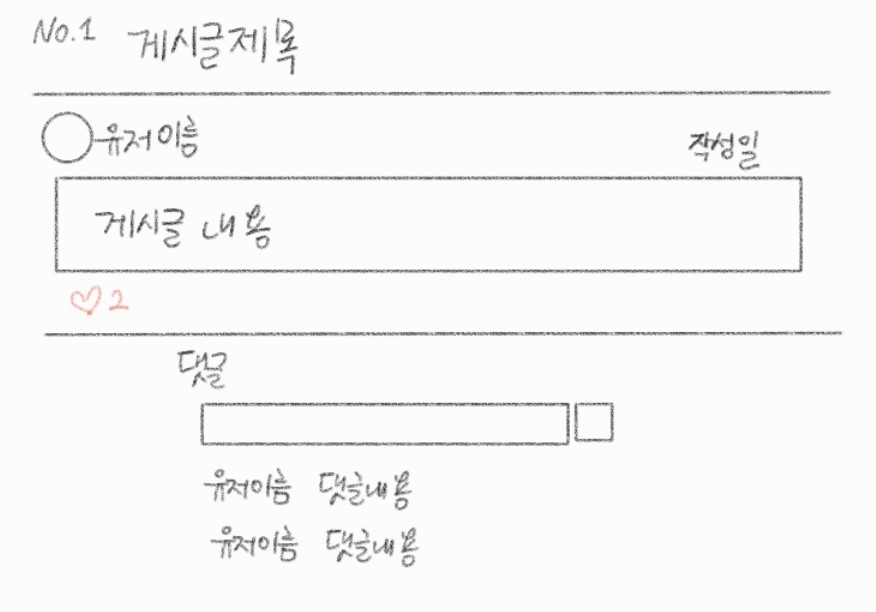 No.1 게시글제목
유저이름 작성일
게시글 내용
♡2
댓글
유저이름 댓글내용
유저이름 댓글내용